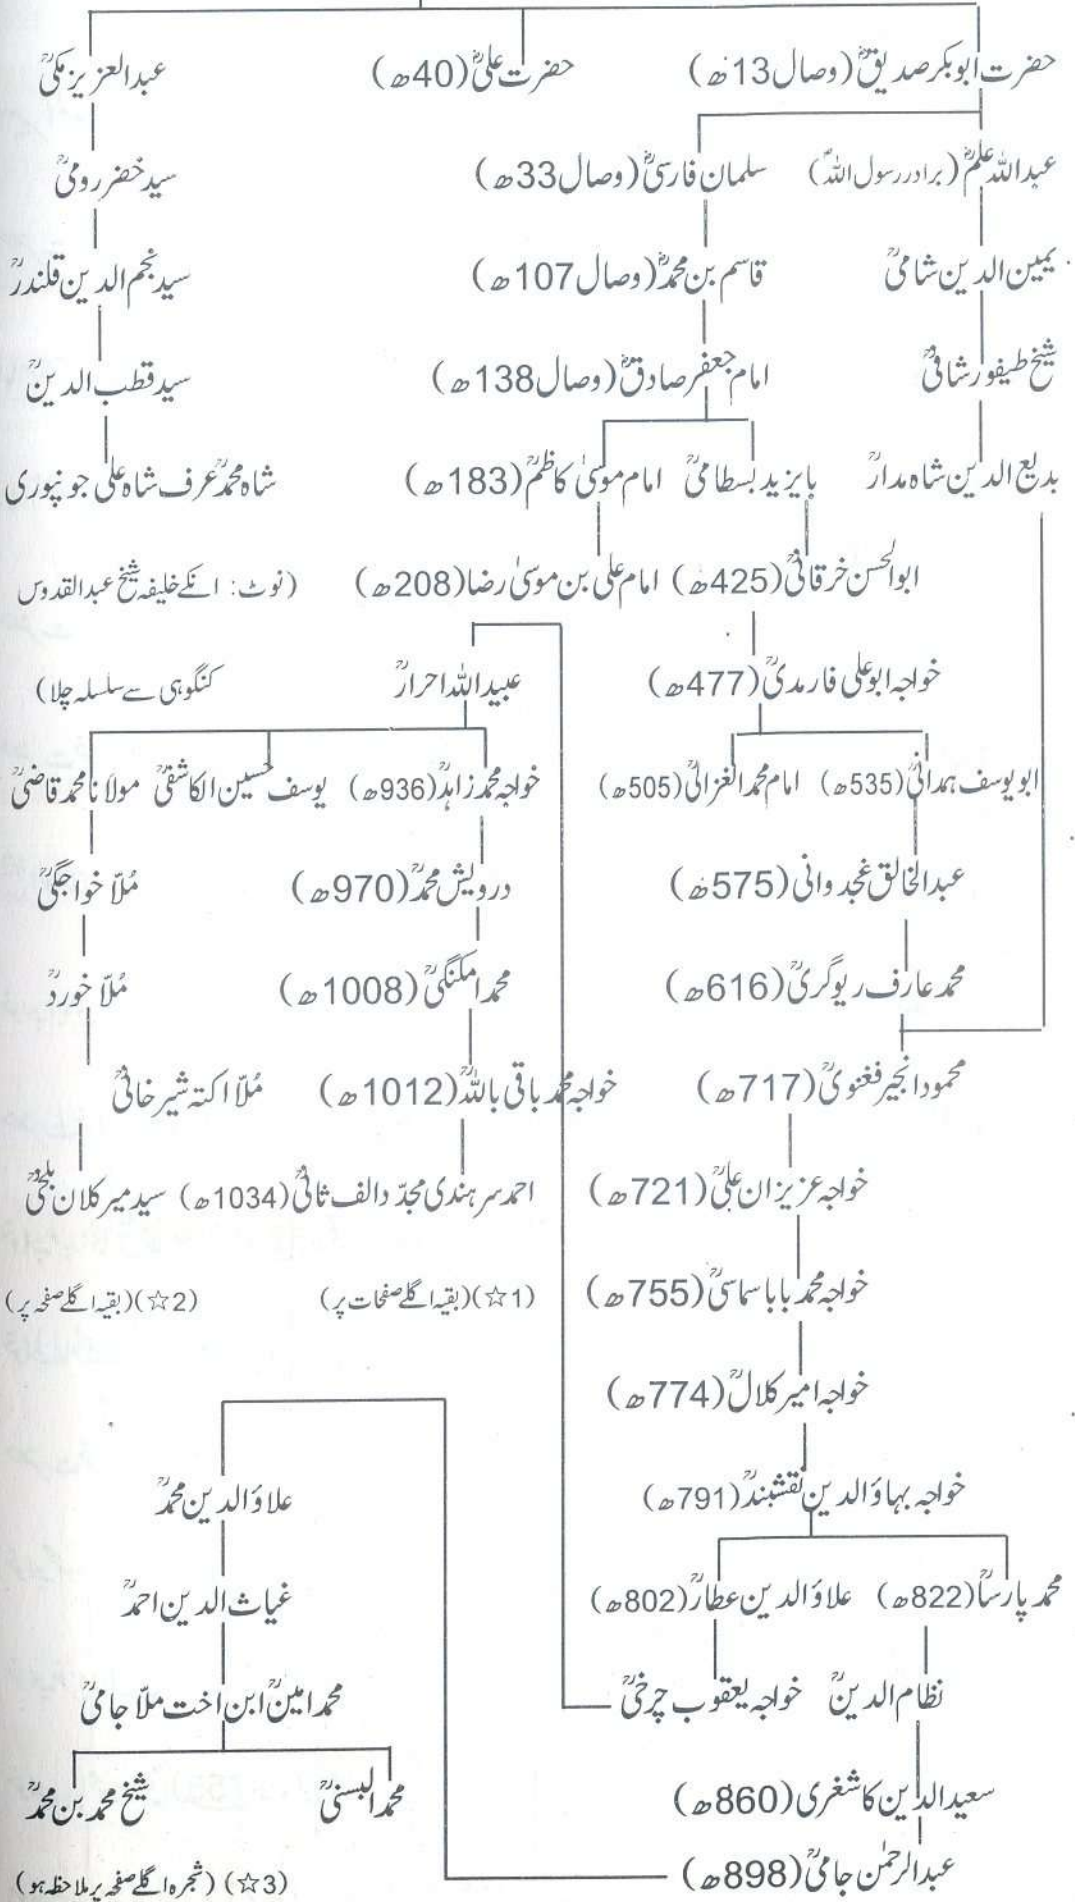 حضرت ابوبکر صدیقؓ (وصال 13ھ) حضرت علیؓ (40ھ) عبدالعزیز مکیؒ
عبداللہ علمؓ (برادر رسول اللہؐ) سلمان فارسیؓ (وصال 33ھ) سید خضر رومیؒ
یمین الدین شامیؒ قاسم بن محمدؓ (وصال 107ھ) سید نجم الدین قلندرؒ
شیخ طیفور شافیؒ امام جعفر صادقؓ (وصال 138ھ) سید قطب الدینؒ
بدیع الدین شاہ مدارؒ بایزید بسطامیؒ امام موسیٰ کاظمؒ (183ھ) شاہ محمدؒ عرف شاہ علی جونپوری
ابوالحسن خرقانیؒ (425ھ) امام علی بن موسیٰ رضا (208ھ) (نوٹ: انکے خلیفہ شیخ عبدالقدوس
خواجہ ابوعلی فارمدیؒ (477ھ) عبیداللہ احرارؒ کنگوہی سے سلسلہ چلا)
ابو یوسف ہمدانیؒ (535ھ) امام محمد الغزالیؒ (505ھ) خواجہ محمد زاہدؒ (936ھ) یوسف حسین الکاشفیؒ مولانا محمد قاضیؒ
عبدالخالق غجدوانی (575ھ) درویش محمدؒ (970ھ) مُلّا خواجگیؒ
محمد عارف ریوگریؒ (616ھ) محمد امکنگیؒ (1008ھ) مُلّا خوردؒ
محمود انجیر فغنویؒ (717ھ) خواجہ محمد باقی باللہؒ (1012ھ) مُلّا اکتہ شیر خانیؒ
خواجہ عزیزان علیؒ (721ھ) احمد سرہندی مجدّد الف ثانیؒ (1034ھ) سید میر کلان بلخیؒ
خواجہ محمد بابا سماسیؒ (755ھ) (1☆) (بقیہ اگلے صفحات پر) (2☆) (بقیہ اگلے صفحہ پر)
خواجہ امیر کلالؒ (774ھ)
خواجہ بہاؤالدین نقشبندؒ (791ھ) علاؤالدین محمدؒ
محمد پارساؒ (822ھ) علاؤالدین عطارؒ (802ھ) غیاث الدین احمدؒ
نظام الدینؒ خواجہ یعقوب چرخیؒ محمد امینؒ ابن اخت ملّا جامیؒ
سعید الدین کاشغری (860ھ) محمد البسنیؒ شیخ محمد بن محمدؒ
عبدالرحمٰن جامیؒ (898ھ) (3☆) (شجرہ اگلے صفحہ پر ملاحظہ ہو)